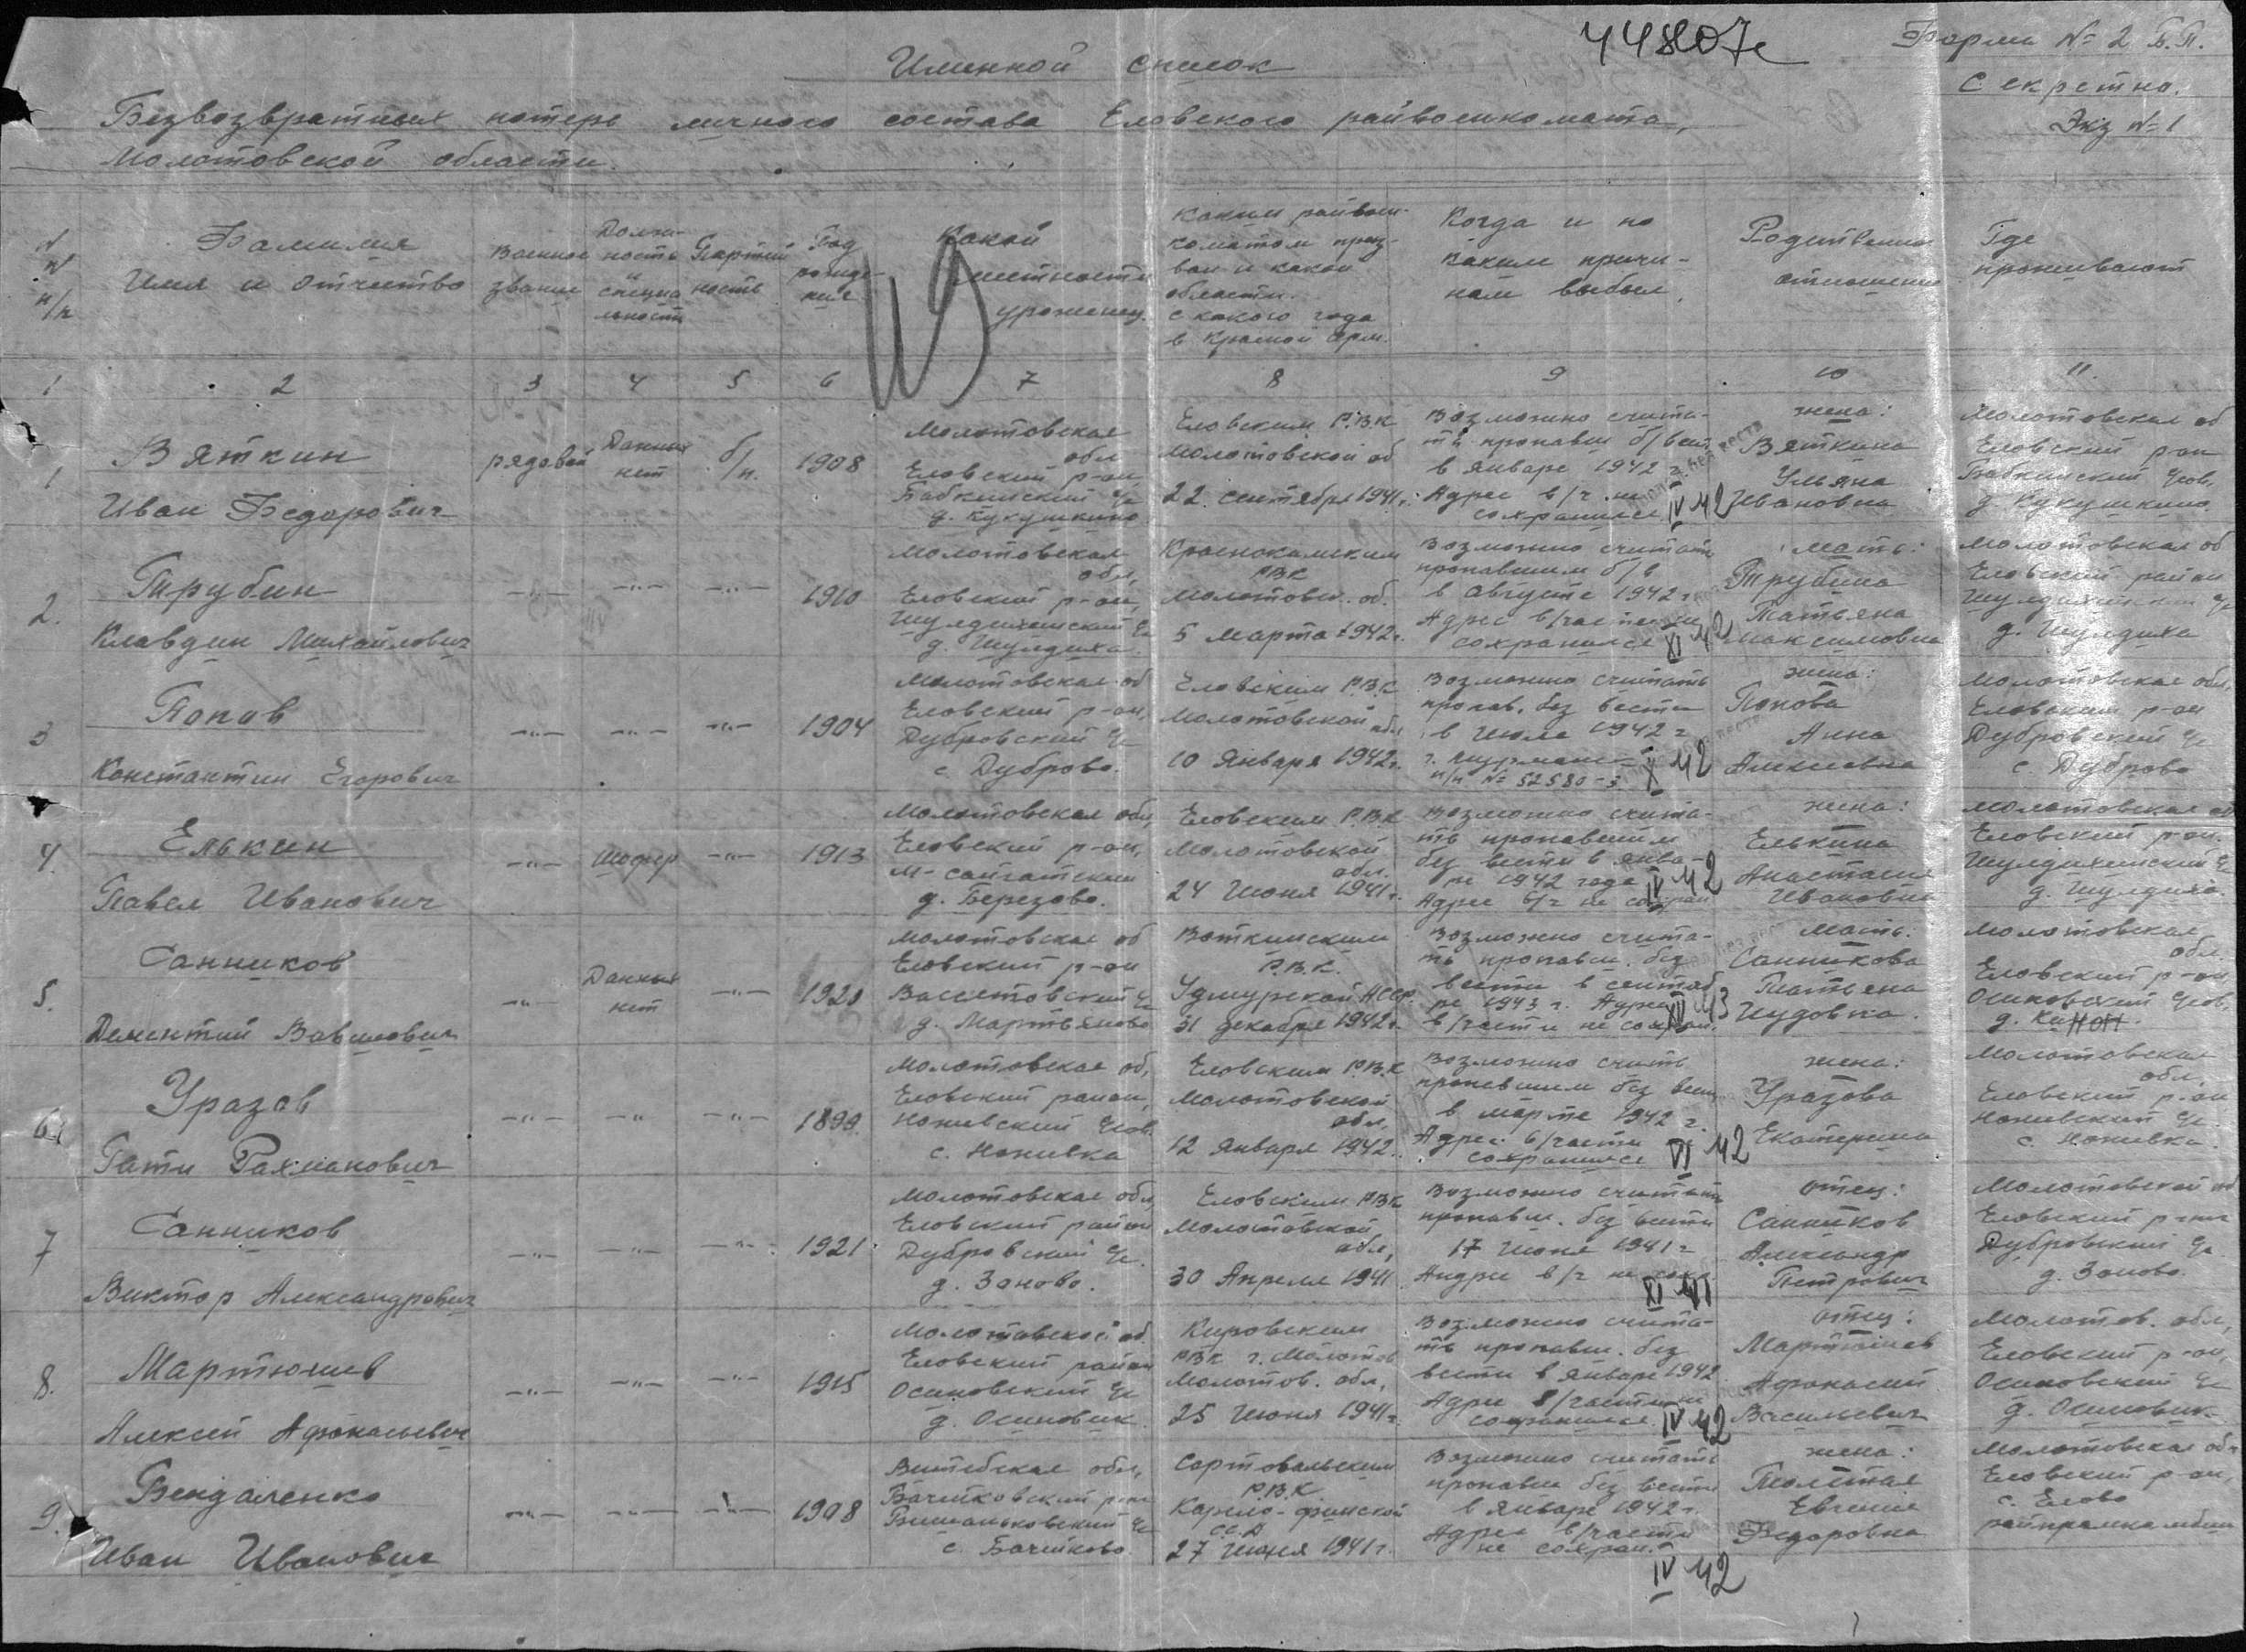 44807с
Форма № 2 Б.П.
Секретно.
Экз № 1
Именной список
Безвозвратных потерь личного состава Еловского райвоенкомата,
Молотовской области.
№ № п/п
Фамилия
Имя и отчество
Военное звание
Должность и специальность
Партийность
Год рождения
Какой местности уроженец.
Каким райвоенкоматом призван и какой области.
с какого года
в Красной Арм.
Когда и по каким причинам выбыл.
Родственные отношения
Где проживают
1 2 3 4 5 6 7 8 9 10 11.
1
Вяткин
Иван Федорович
рядовой
Данных нет
б/п.
1908
Молотовская обл
Еловский р-он,
Бабкинский с/с
д. Кукушкино
Еловским Р.В.К
Молотовской об
22 сентября 1941 г.
Возможно считать пропавш б/вест
в январе 1942 г.
Адрес в/ч не сохранился
IV 42
жена:
Вяткина
Ульяна
Ивановна
Молотовская об
Еловский р-он
Бабкинский
д Кукушкино.
2.
Трубин
Клавдин Михайлович
-"- -"- -"-
1910
Молотовская обл,
Еловский р-он,
Шулдихинский с/с
д. Шулдиха.
Краснокамским РВК
Молотовск. об.
5 марта 1942 г.
Возможно считать
пропавшим б/в
в августе 1942 г
Адрес в/части не
сохранился
XI 42
мать:
Трубина
Татьяна
Максимовна
Молотовская об
Еловский район
Шулдихинский с/с
д. Шулдиха
3
Попов
Константин Егорович
-"- -"- -"-
1904
Молотовская об
Еловский р-он,
Дубровский с/с
с. Дуброво.
Еловским Р.В.К
Молотовской обл
10 Января 1942 г.
Возможно считать
пропав. без вести
в июле 1942 г
п/п № 52580-з
X 42
жена:
Попова
Анна
Алексеевна
Молотовская обл,
Еловский р-он
Дубровский с/с
с. Дуброво
4.
Елькин
Павел Иванович
-"- шофер -"-
1913
Молотовская обл,
Еловский р-он,
М-сайгатский
д. Березово.
Еловским Р.В.К
Молотовской обл.
24 Июня 1941 г.
Возможно считать пропавшим
без вести в январе 1942 года
Адрес в/ч не сохран
IV 42
жена:
Елькина
Анастасия
Ивановна
Молотовская об
Еловский р-он.
Шулдихинский с/с
д. Шулдиха.
5.
Санников
Дементий Вавилович
-"- Данных нет -"-
Молотовская об
Еловский р-он
д. Мартьяново
Воткинским Р.В.К.
Удмурской АССР
31 декабря 1942 г.
Возможно считать пропавш. без
вести в сентябре 1943 г. Адрес
в/части не сохран.
мать:
Санникова
Татьяна
Молотовская обл.
Еловский р-он,
Осиновский
6.
Уразов
Гати Рахманович
-"- -"- -"-
1899.
Молотовская об,
Еловский район,
с. Коневка
Еловским Р.В.К
Молотовской обл,
12 Января 1942.
Возможно счить
пропавшим без вест
в марте 1942 г.
Адрес в/части
сохранился
VI 42
жена:
Уразова
Екатерина
Молотовская обл.
Еловский р-он
7
Санников
Виктор Александрович
-"- -"- -"-
1921
Молотовская обл,
Еловский район
Дубровский с/с.
д. Заново.
Еловским РВК
Молотовской обл,
30 Апреля 1941
Возможно считать
пропавш. без вести
17 Июня 1941 г
Андрес в/ч не сохр
XI 41
отец:
Санников
Александр
Петрович
Молотовской об
Еловский р-он
Дубровский с/с
д. Заново.
8.
Мартюшев
Алексей Афонасьевич
-"- -"- -"-
1915
Молотовской об
Еловский район
Осиновский с/с
д. Осиновик.
Кировским
РВК г. Молотов
Молотов. обл,
25 Июня 1941 г.
Возможно считать пропавш. без
вести в январе 1942
Адрес в/части не
сохранился
IV 42
отец:
Мартюшев
Афонасий
Васильевич
Молотов. обл,
Еловский р-он,
Осиновский с/с
д. Осиновик.
9.
Иван Иванович
-"- -"- -"-
1908
Витебская обл,
Сортовальским Р.В.К
Карело-финской
27 Июня 1941 г.
Возможно считать
пропавш без вести
в январе 1942 г.
Адрес в/части
не сохран.
IV 42
жена:
Евгения
Федоровна
Молотовская обл
Еловский р-он,
с. Елово